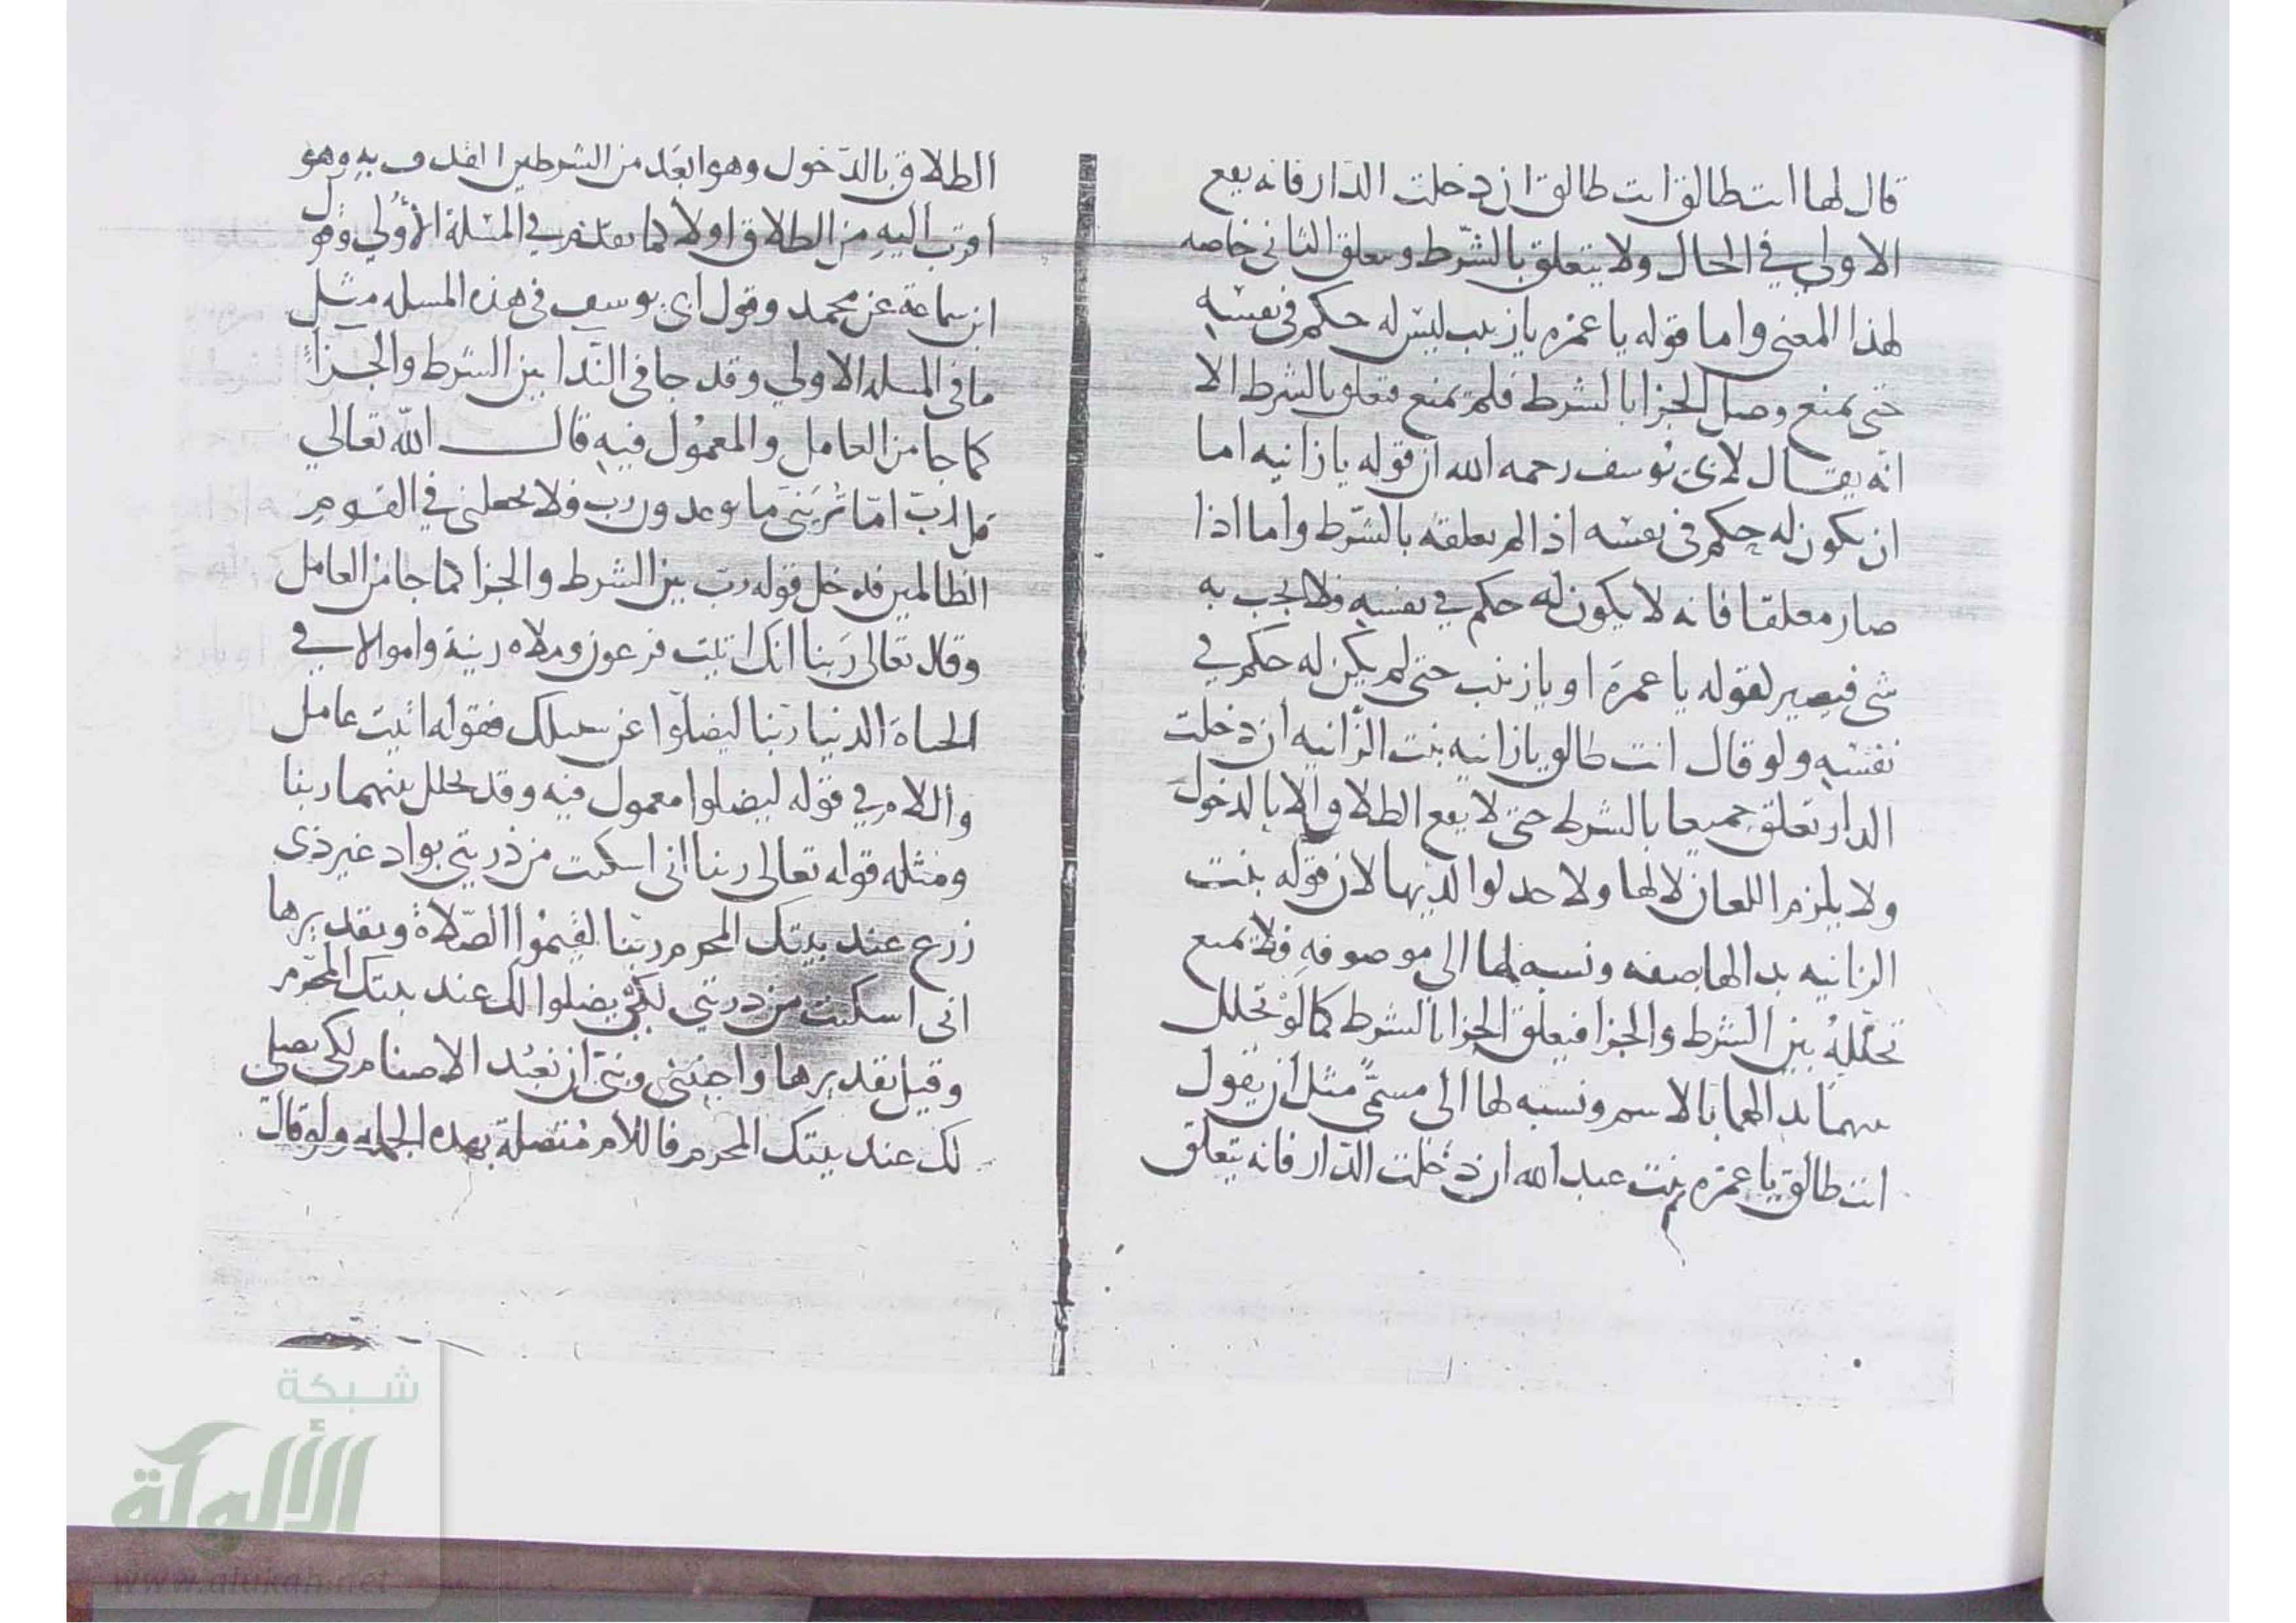 قال لها انت طالق انت طالق ان دخلت الدار فانه يقع
الاولى في الحال ولا يتعلق بالشرط ويتعلق الثاني خاصه
لهذا المعنى واما قوله يا عمره يا زينب ليس له حكم في نفسه
حتى يمنع وصل الجزا بالشرط فلم يمنع فتعلق بالشرط الا
انه يقال لابي يوسف رحمه الله ان قوله يا زانيه اما
ان يكون له حكم في نفسه اذا لم يعلقه بالشرط واما اذا
صار معلقا فانه لا يكون له حكم في نفسه فلا يجب به
شي فيصير لقوله يا عمرة او يا زينب حتى لم يكن له حكم في
نفسه ولو قال انت طالق يا زانيه بنت الزانيه ان دخلت
الدار تعلق جميعا بالشرط حتى لا يقع الطلاق الا بالدخول
ولا يلزم اللعان لا لها ولا حد لوالديها لان قوله بنت
الزانيه بدا لها صفه ونسبه لها الى موصوفه فلا يمنع
تخلله بين الشرط والجزا فيعلق الجزا بالشرط كما لو تخلل
بينهما بدا لهما بالاسم ونسبه لها الى مسمى مثل ان يقول
انت طالق يا عمره بنت عبد الله ان دخلت الدار فانه يتعلق
الطلاق بالدخول وهو ابعد من الشرطين القذف به وهو
اقرب اليه من الطلاق اولا كما تقدم في المسئلة الأولى وهو قول
ابن سماعة عن محمد وقول ابي يوسف في هذه المسله مثل
ما في المسله الاولى وقد جا في الندا بين الشرط والجزا
كما جا من العامل والمعمول فيه قال الله تعالى
قل رب اما تريني ما يوعدون رب فلا تجعلني في القوم
الظالمين فدخل قوله رب بين الشرط والجزا كما جا من العامل
وقال تعالى ربنا انك اتيت فرعون وملاه زينة واموالا في
الحياة الدنيا ربنا ليضلوا عن سبيلك فقوله اتيت عامل
واللام في قوله ليضلوا معمول فيه وقد تخلل بينهما ربنا
ومثله قوله تعالى ربنا اني اسكنت من ذريتي بواد غير ذي
زرع عند بيتك المحرم ربنا ليقيموا الصلاة وتقديرها
اني اسكنت من ذريتي لكي يصلوا لك عند بيتك المحرم
وقيل تقديرها واجنبني وبني ان نعبد الاصنام لكي يصلي
لك عند بيتك المحرم فاللام متصلة بهذه الجمله ولو قال
شبكة
الألوكة
www.alukah.net